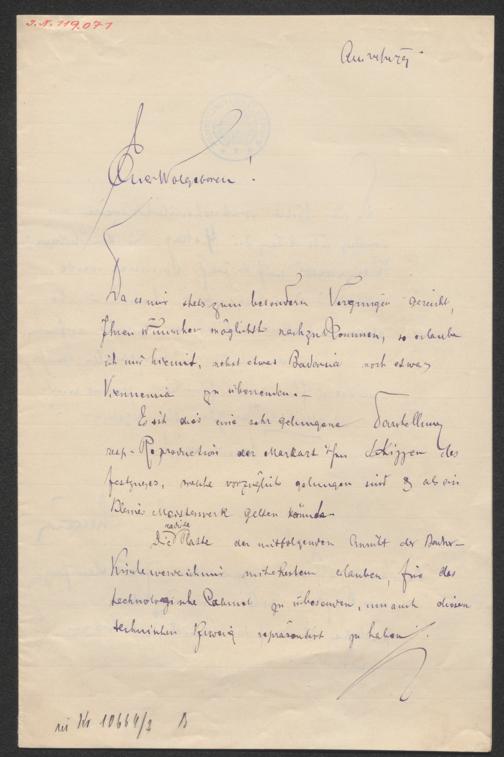 J.N. 119.071
Euer Wolgeboren!
Da es mir stets zum besondern Vergnügen gereicht,
Ihren Wünschen möglichst nachzukommen, so erlaube
ich mir hiemit, nebst etwas Bavaria noch etwas
Viennensia zu übersenden.–
Es ist dies eine sehr gelungene Darstellung
resp. Reproduction der Makart'schen Skizzen des
Festzuges, welche vorzüglich gelungen sind & als ein
kleines Meisterwerk gelten
Die der mitfolgenden Ansicht der
werde ich mir erlauben, für das
technologische Cabinet zu übersenden, um auch diesen
technischen Zweig repräsentirt zu haben.
10664/3 B